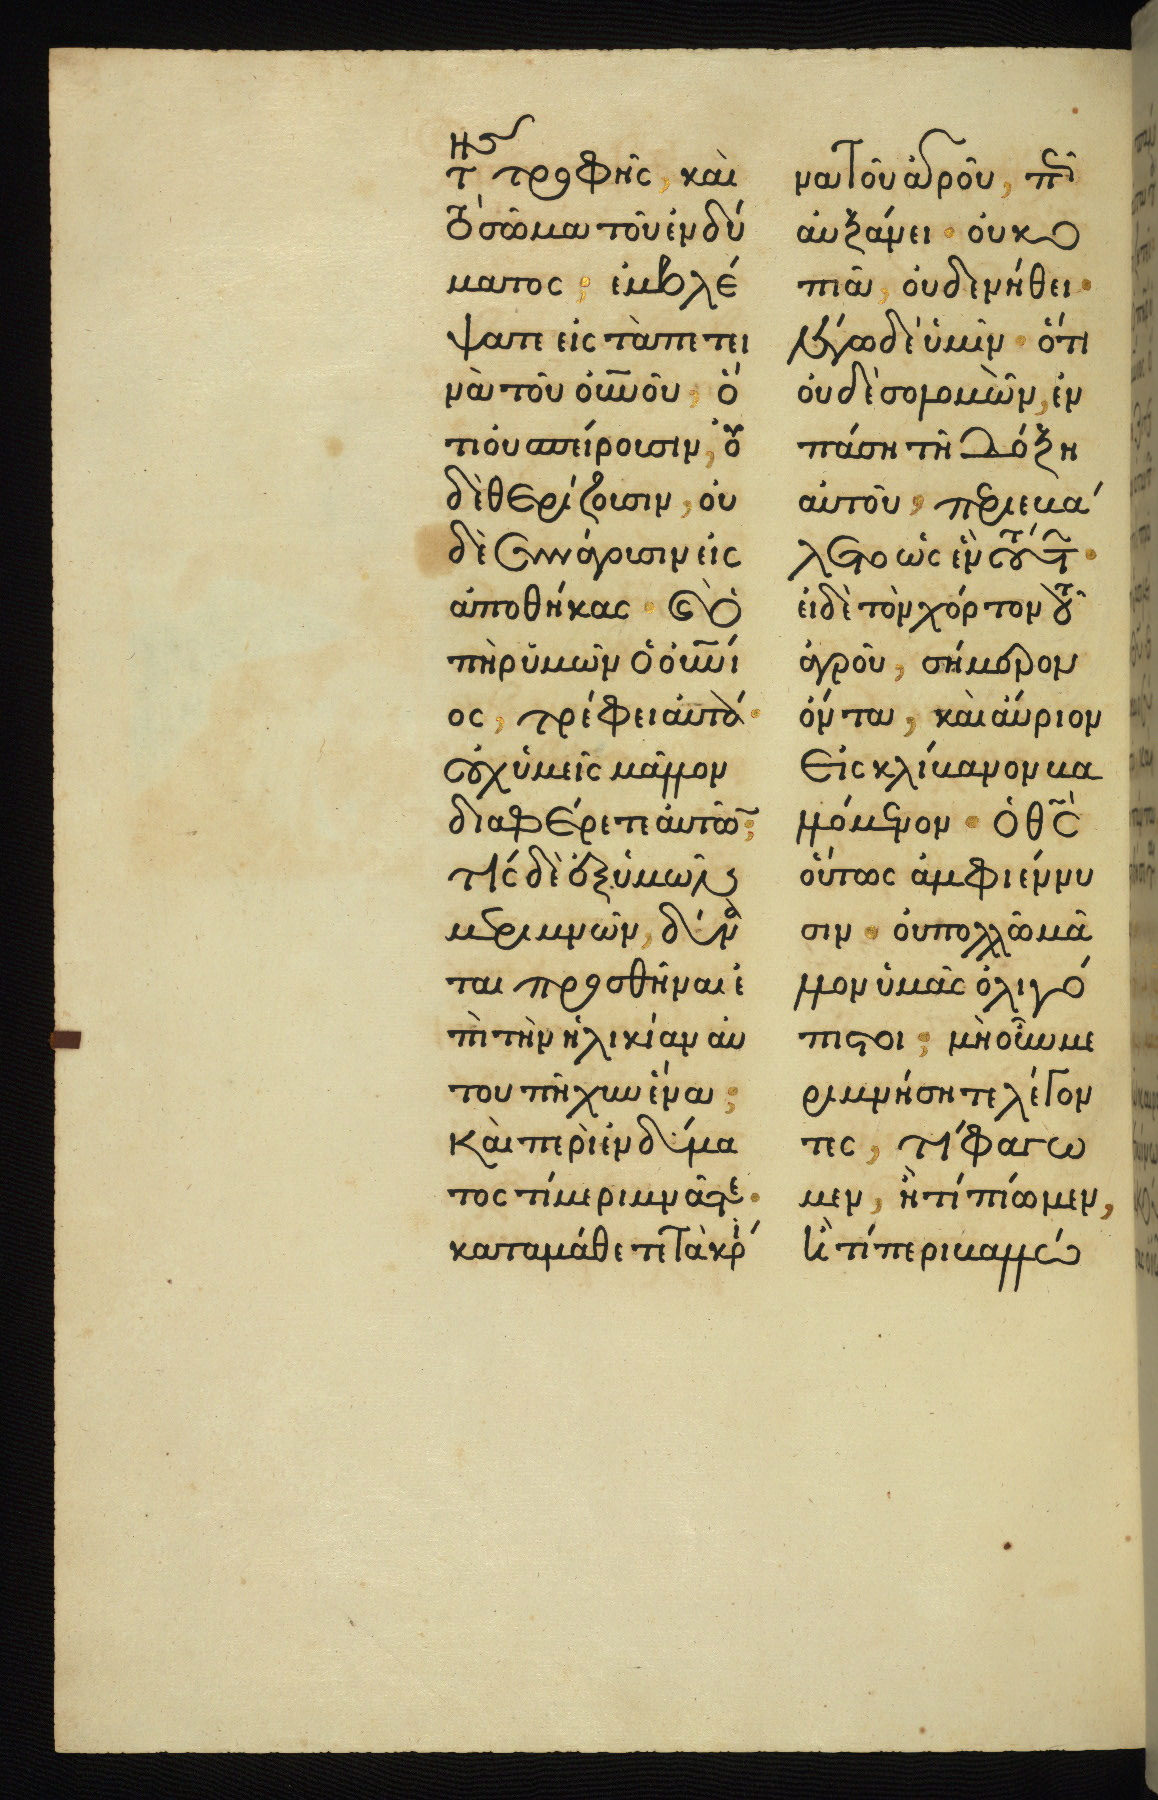 τῆς τροφῆς, καὶ
τὸ σῶμα τοῦ ἐνδύ
ματος; ἐμβλέ
ψατε εἰς τὰ πετει
νὰ τοῦ οὐνοῦ, ὅ
τι οὐ σπείρουσιν, οὐ
δὲ θερίζουσιν, οὐ
δὲ συνάγουσιν εἰς
ἀποθήκας· καὶ ὁ
πὴρ ὑμῶν ὁ οὐνι
ος, τρέφει αὐτά·
οὐχ ὑμεῖς μᾶλλον
διαφέρετε αὐτῶν;
τίς δὲ ἐξ ὑμῶν
μεριμνῶν, δύνα
ται προσθῆναι ἐ
πὶ τὴν ἡλικίαν αὐ
του πῆχυν ἕνα;
καὶ περὶ ἐνδύμα
τος τί μεριμνᾶτε·
καταμάθετε τὰ κρί
να τοῦ ἀγροῦ, πῶς
αὐξάνει· οὐ κο
πιᾶ, οὐδὲ νήθει·
λέγω δὲ ὑμῖν· ὅτι
οὐδὲ σολομὼν, ἐν
πάση τῆ δόξη
αὐτοῦ, περιεβά
λετο ὡς ἓν τούτων·
εἰ δὲ τὸν χόρτον τοῦ
ἀγροῦ, σήμερον
ὄντα, καὶ αὔριον
εἰς κλίβανον βα
λλόμενον· ὁ θς
οὕτως ἀμφιέννυ
σιν· οὐ πολλῶ μᾶ
λλον ὑμᾶς ὀλιγό
πιστοι; μὴ οὖν με
ριμνήσητε λέγον
τες, τί φάγω
μεν, ἢ τί πίωμεν,
ἢ τί περιβαλλώ